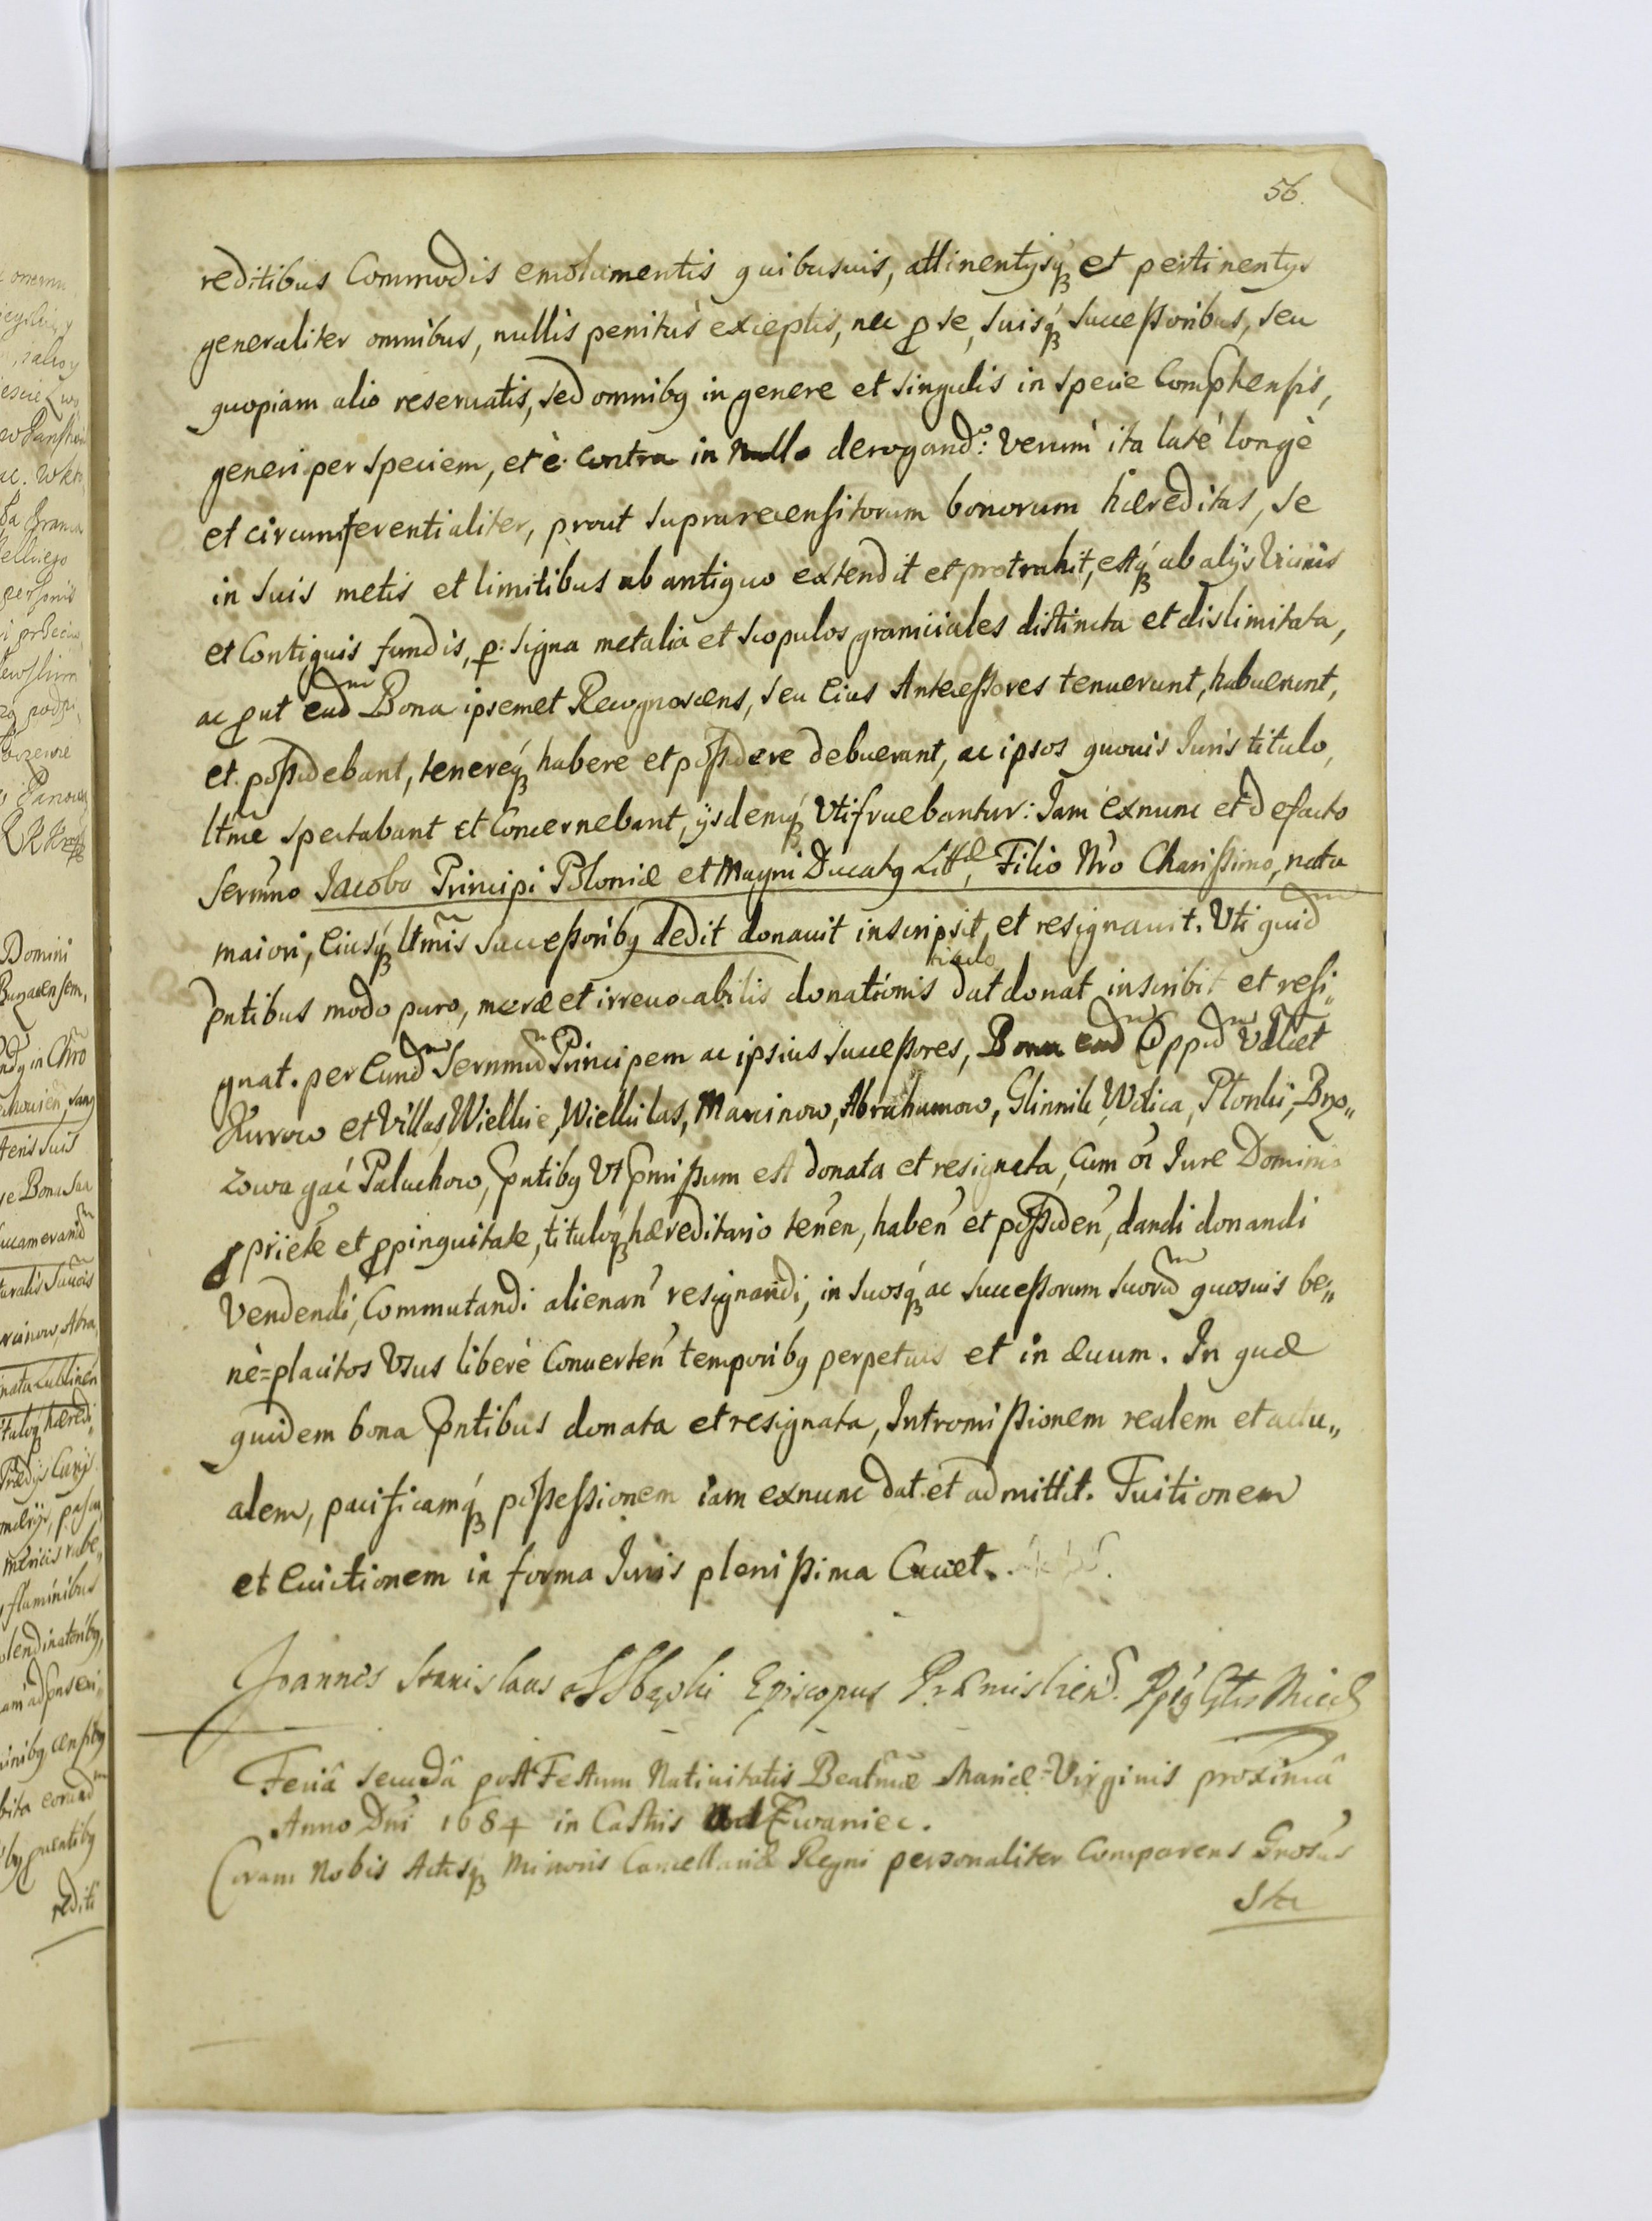 56.
reditibus Commodis emolumentis quibusuis, attinentijsq́ȝ et pertinentijs
generaliter omnibus, nullis penitus exceptis, nec p se, suisq́ȝ Succeßoribus, seu
quopiam alio reseruatis, sed omnibq in genere et singulis in specie Comphensis,
generi per speciem, et è contra in Nullo derogand: Verum ita latè longè
et circumferentialiter, prout suprarecensitorum bonorum hæreditas, se
in suis metis et limitibus ab antiquo extendit et protrahit, estq́ȝ ab alijs Vicinis
et Contiguis fundis, p: signa metalia et scopulos graniciales distincta et dislimitata,
ac put ead̃ Bona ipsemet Recognoscens, seu Eius Anteceßores tenuerunt, habuerunt,
et poßidebant, tenereq́ȝ habere et poßidere debuerant, ac ipsos quouis Iuris titulo,
ltm̃e spectabant et Concernebant, ijsdemq́ȝ Vtifruebantur: Iam exnunc et defacto
Sermno Jacobo Principi Poloniæ et Magni Ducatq Littæ, Filio Nro Charißimo, natu
maiori, Eiusq́ȝ ltm̃is Succeßoribq dedit donauit inscripsit, et resignauit. Vti quid̃
titulo
pntibus modo puro, meræ et irreuocabilis donationis dat donat inscribit et resi„
gnat. per Eund̃ Sernmũ Principem ac ipsius succeßores, Bona ead̃ Oppid̃ Vdlicet
Kurow et Villas Wielkie, Wielkilas, Marcinow, Abrahamow, Glinnik, Wolica, Plonki, Brzo„
zowa gać Paluchow, pntibq Vt pmißum est donata et resignata, Cum oĩ Iure Dominio
priete et ppinguitate, tituloq́ȝ hæreditario tenen, haben et poßiden, dandi donandi
Vendendi, Commutandi alienan resignandi, in suosq́ȝ ac succeßorum suorũ quosuis be„
nè=placitos Vsus liberè Conuerten temporibq perpetuis et in æuum. In quæ
quidem bona pntibus donata et resignata, Intromißionem realem et actu„
alem, pacificamq́ȝ poßeßionem iam exnunc dat et admittit. Tuitionem
et Euictionem in forma Iuris plenißima Cauet.
Joannes Stanislaus Episcopus
Feriâ secundâ post Festum Natiuitatis Beatm̃æ Mariæ=Virginis proximâ
Anno Dni 1684 in Castris ad Zwaniec.
Coram Nobis Actisq́ȝ Minoris Cancellariæ Regni personaliter Comparens Gnosus
Sta